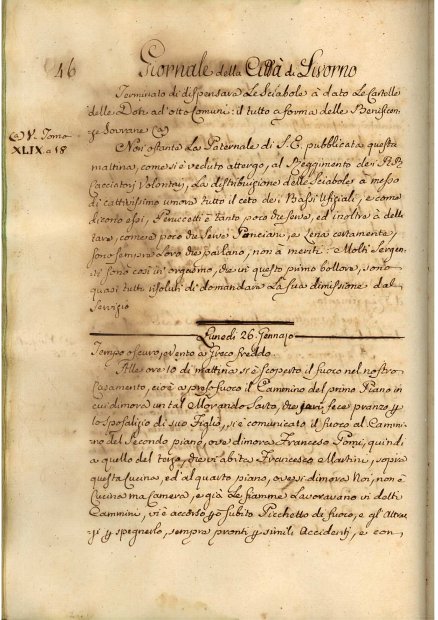 46 Giornale della Città di Livorno
Terminato di dispensare le Sciabole à dato le Cartelle
delle Dote ad otto Comuni: il tutto a forma delle Beneficen-
ze Sovrane (a)
(a) V. Tomo
XLIX. a 18
Non ostante La Paternale di S. E. pubblicata questa
mattina, come si è veduto attergo, al Reggimento dei RR.
Cacciatori Volontarj, La distribuzione delle Sciabole à messo
di cattivissimo umore tutto il ceto dei Bassi Ufiziali, e come
dicono essi, Peruccetti è tanto poco che serve, ed inoltre à delle
tare, come
poco che serve Ponciani, e Zena certamente,
sono sempre Loro che parlano, non à meriti: Molti Sergen-
ti sono così in orgasmo, che in questo primo bollore, sono
quasi tutti risoluti di domandare La sua dimissione dal
Servizio
Lunedì 26. Gennajo
Tempo oscuro, e vento a Greco freddo.
Alle ore 10 di mattina si è scoperto il fuoco nel nostro
Casamento, cioè à preso fuoco il Cammino del primo Piano in
cui dimora un tal Morando Sarto, che jeri fece pranzo p
lo sposalizio di suo Figlio, si è comunicato il fuoco al Cammi-
no del Secondo piano, ove dimora Francesco Pomi, quindi
a quello del terzo, che vi abita Francesco Martini, sopra
questa Cucina, ed al quarto piano, ove si dimora Noi, non è
Cucina ma Camera, e già Le fiamme Lavoravano in detti
Cammini, vi è accorso però subito Picchetto di fuoco, e gl'Attraz-
zi p spegnerlo, sempre pronti p simili Accidenti, e con